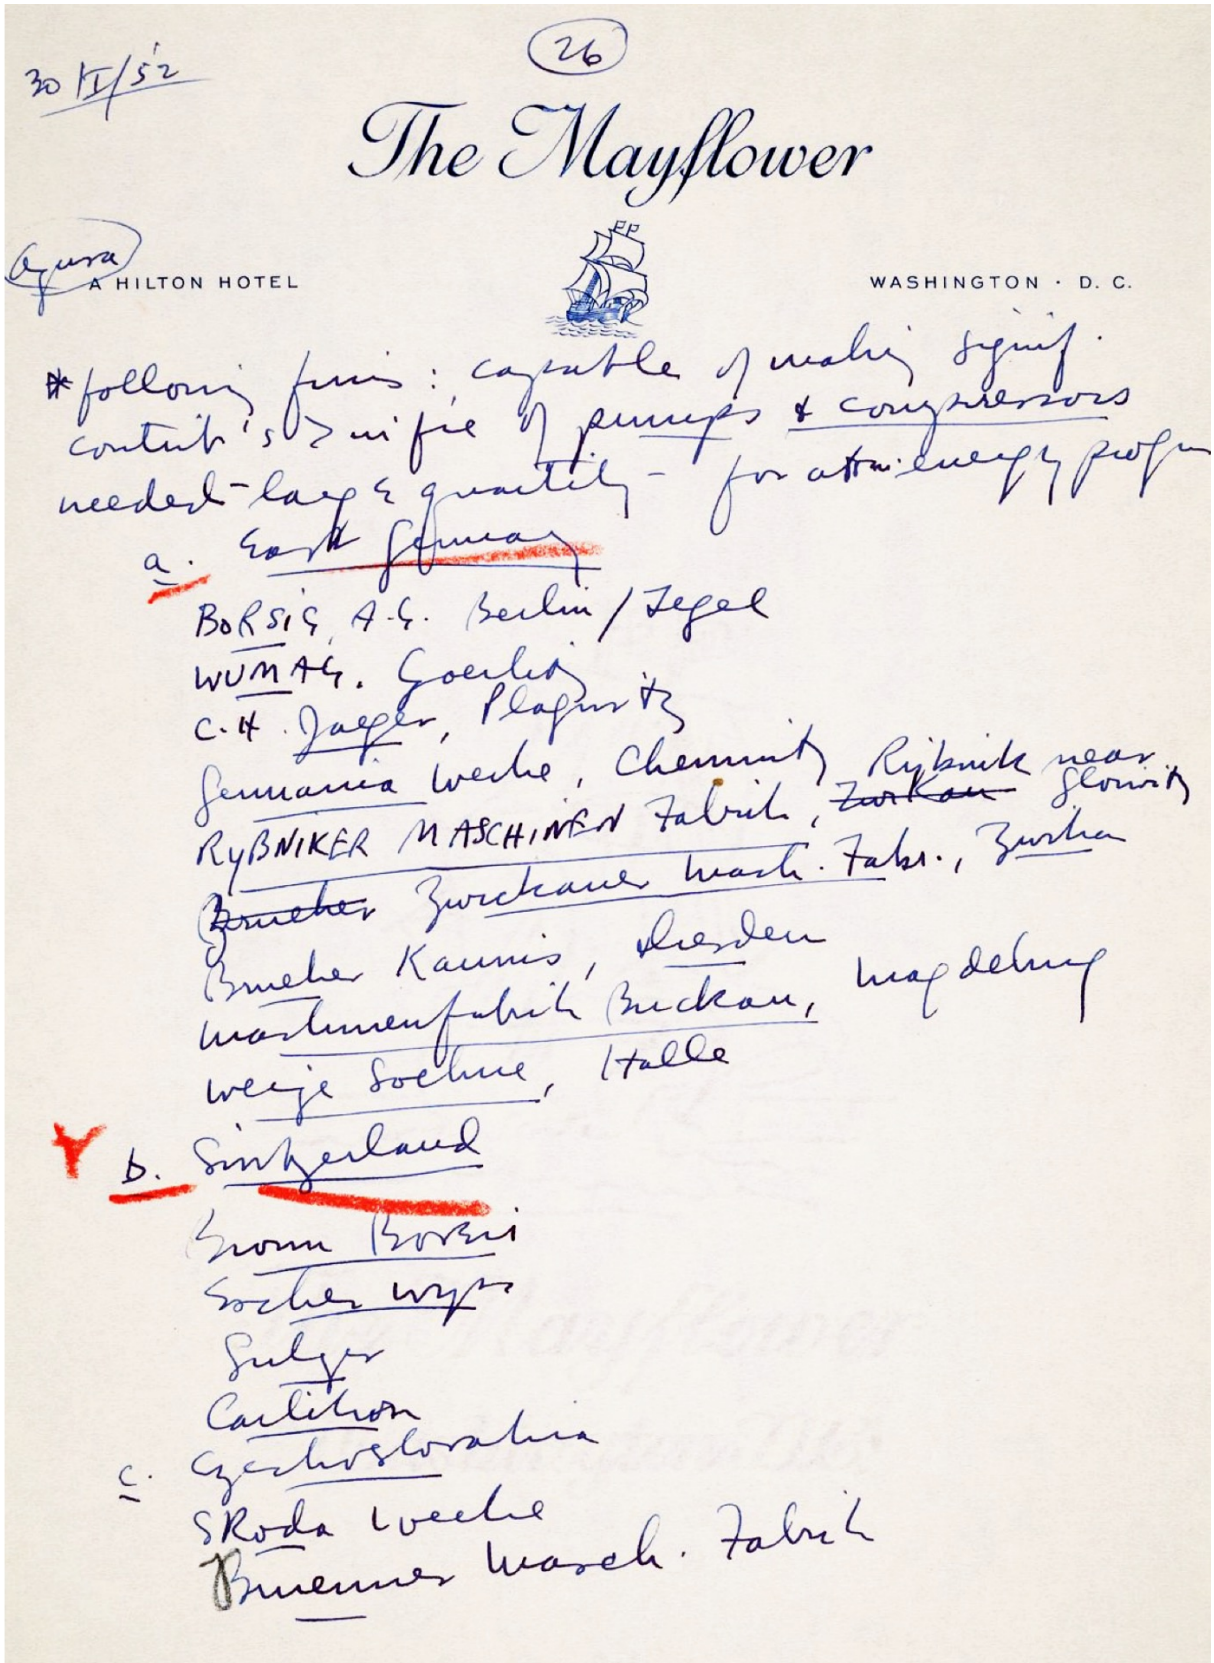 26
30/XI/52
The Mayflower
A HILTON HOTEL
WASHINGTON · D. C.
* following firms: capable of making signif.
contrib's > mfre of pumps & compressors
needed - large quantity - for atom. energy progr
a. East Germany
BORSIG, A.G. Berlin/Tegel
WUMAG. Goerlitz
C.H. Jaeger, Plagwitz
Germania Werke, Chemnitz
Rybnik near
RYBNIKER MASCHINEN Fabrik, Zwickau Gleiwitz
Brueker Zwickauer Masch. Fabr., Zwickau
Brueker Kannis, Dresden
Maschinenfabrik Buckau, Magdeburg
Weise Soehne, Halle
b. Switzerland
Brown Boveri
Escher Wyss
Sulzer
Oerlikon
c. Czechoslovakia
SKoda Werke
Bruenner Masch. Fabrik